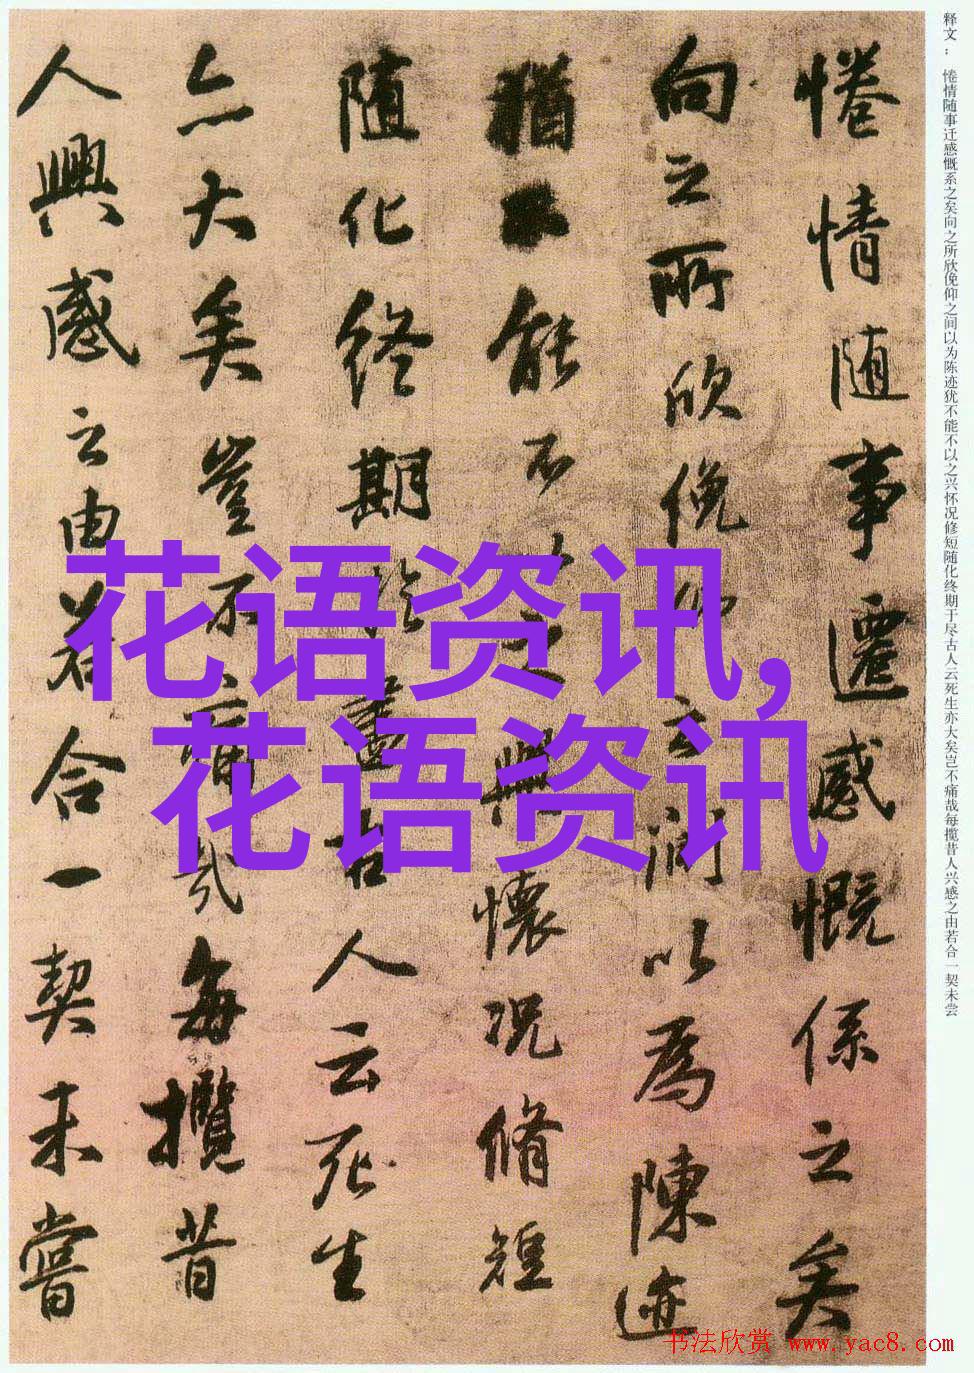 释文：惓情随事迁感慨系之矣向之所欣俛仰之间以为陈迹犹不能不以之兴怀况修短随化终期于尽古人云死生亦大矣岂不痛哉每揽昔人兴感之由若合一契未尝
惓情随事遷感慨係之矣
向之所欣俛仰之間以為陳迹
猶不能不以之興懷況脩短
随化終期於盡古人云死生
亦大矣豈不痛哉每攬昔
人興感之由若合一契未嘗
花语资讯,
花语资讯
书法欣赏 www.yac8.com